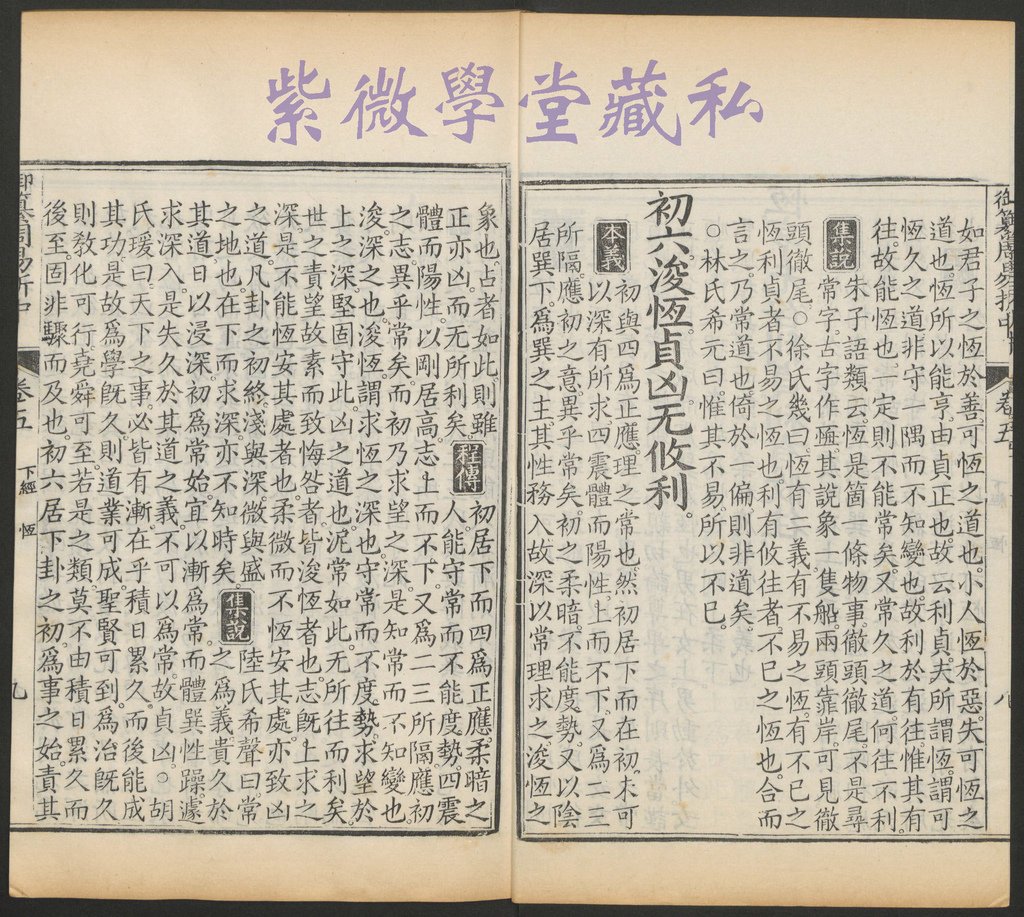 紫微學堂藏私
御纂周易折中
卷五
八
如君子之恆於善可恆之道也小人恆於惡失可恆之
道也恆所以能亨由貞正也故云利貞夫所謂恆謂可
恆久之道非守一隅而不知變也故利於有往惟其有
往故能恆也一定則不能常矣又常久之道何往不利
集說
朱子語類云恆是箇一條物事徹頭徹尾不是尋
常字古字作𠄨其說象一隻船兩頭靠岸可見徹
頭徹尾○徐氏幾曰恆有二義有不易之恆有不已之
恆利貞者不易之恆也利有攸往者不已之恆也合而
言之乃常道也倚於一偏則非道矣
○林氏希元曰惟其不易所以不已
初六浚恆貞凶无攸利
本義
初與四爲正應理之常也然初居下而在初未可
以深有所求四震體而陽性上而不下又爲二三
所隔應初之意異乎常矣初之柔暗不能度勢又以陰
居巽下爲巽之主其性務入故深以常理求之浚恆之
象也占者如此則雖
正亦凶而无所利矣
程傳
初居下而四爲正應柔暗之
人能守常而不能度勢四震
體而陽性以剛居高志上而不下又爲二三所隔應初
之志異乎常矣而初乃求望之深是知常而不知變也
浚深之也浚恆謂求恆之深也守常而不度勢求望於
上之深堅固守此凶之道也泥常如此无所往而利矣
世之責望故素而致悔咎者皆浚恆者也志旣上求之
深是不能恆安其處者也柔微而不恆安其處亦致凶
之道凡卦之初終淺與深微與盛
之地也在下而求深亦不知時矣
集說
陸氏希聲曰常
之爲義貴久於
其道日以浸深初爲常始宜以漸爲常而體巽性躁遽
求深入是失久於其道之義不可以爲常故貞凶○胡
氏瑗曰天下之事必皆有漸在乎積日累久而後能成
其功是故爲學旣久則道業可成聖賢可到爲治旣久
則敎化可行堯舜可至若是之類莫不由積日累久而
後至固非驟而及也初六居下卦之初爲事之始責其
御纂周易折中
卷五
下經
恆
九